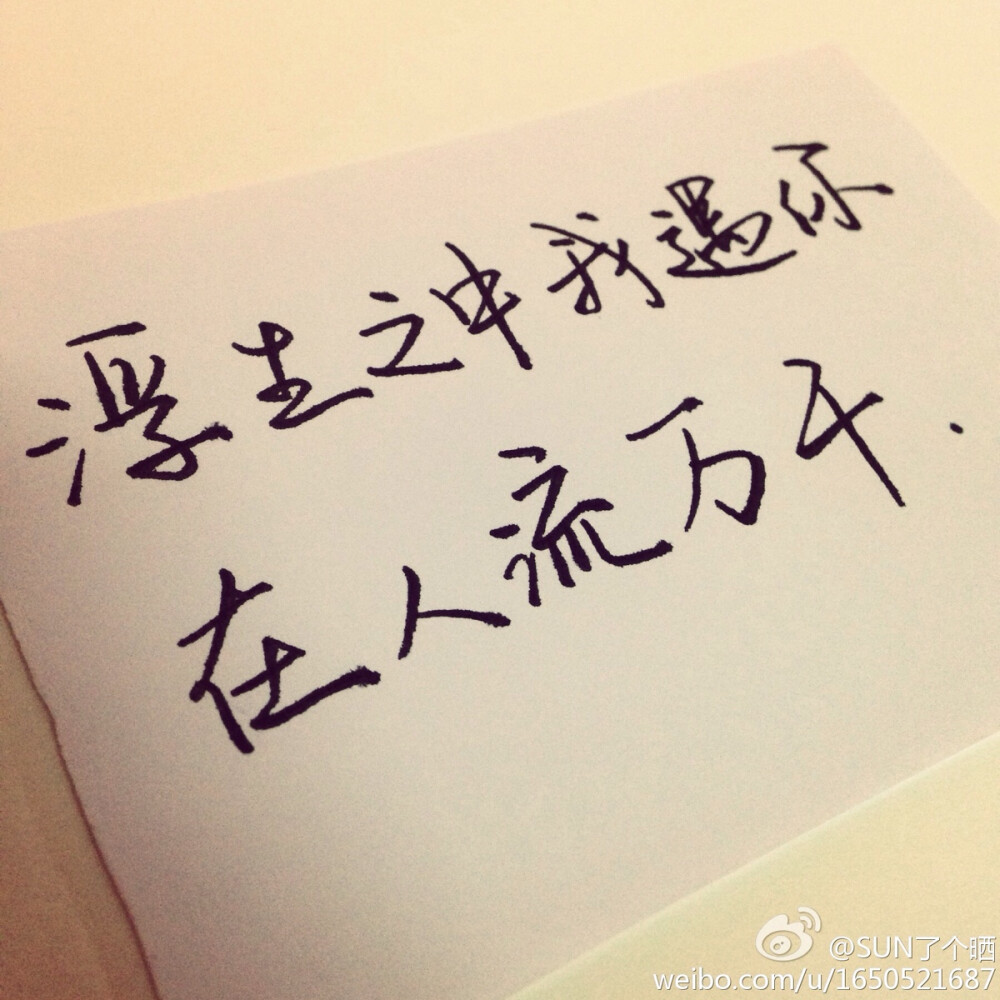 浮生之中我遇你
在人流万千.
@SUN了个晒
weibo.com/u/1650521687